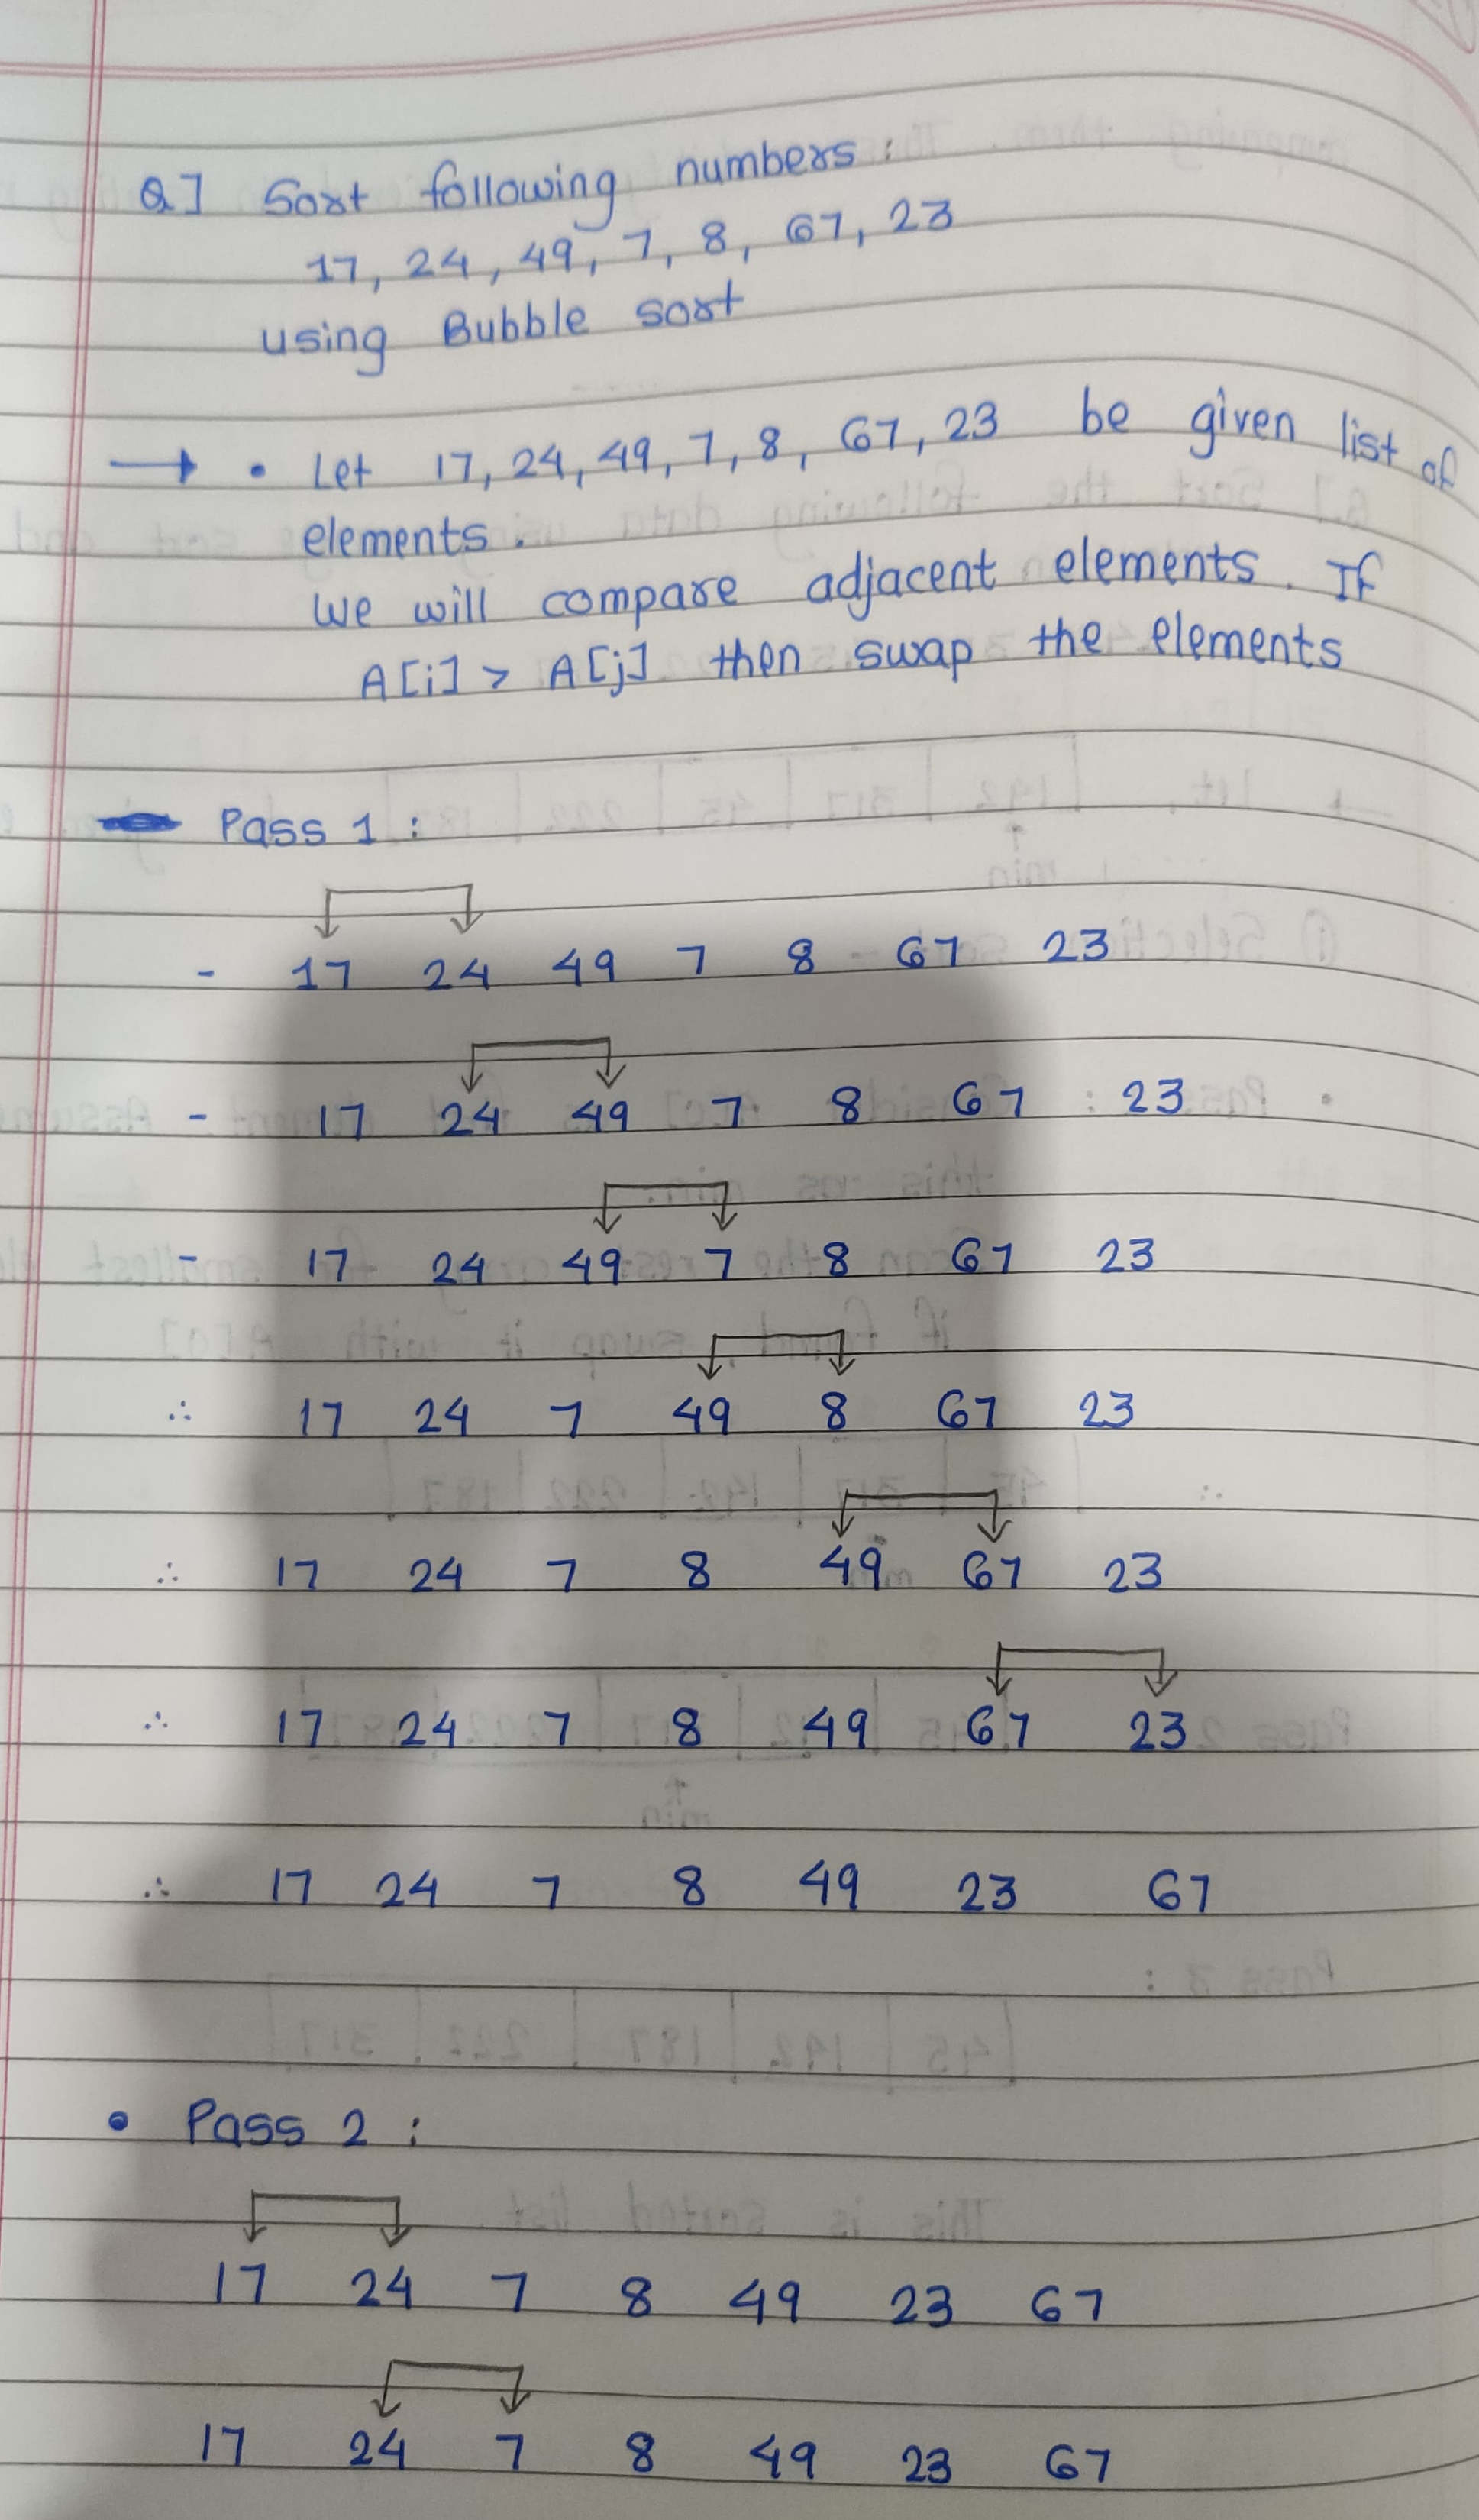 Q] Sort following numbers :
17, 24, 49, 7, 8, 67, 23
using Bubble sort
→ • Let 17, 24, 49, 7, 8, 67, 23 be given list of
elements.
We will compare adjacent elements. If
A[i] > A[j] then swap the elements
Pass 1 :
- 17 24 49 7 8 67 23
- 17 24 49 7 8 67 23
- 17 24 49 7 8 67 23
∴ 17 24 7 49 8 67 23
∴ 17 24 7 8 49 67 23
∴ 17 24 7 8 49 67 23
∴ 17 24 7 8 49 23 67
• Pass 2 :
17 24 7 8 49 23 67
17 24 7 8 49 23 67